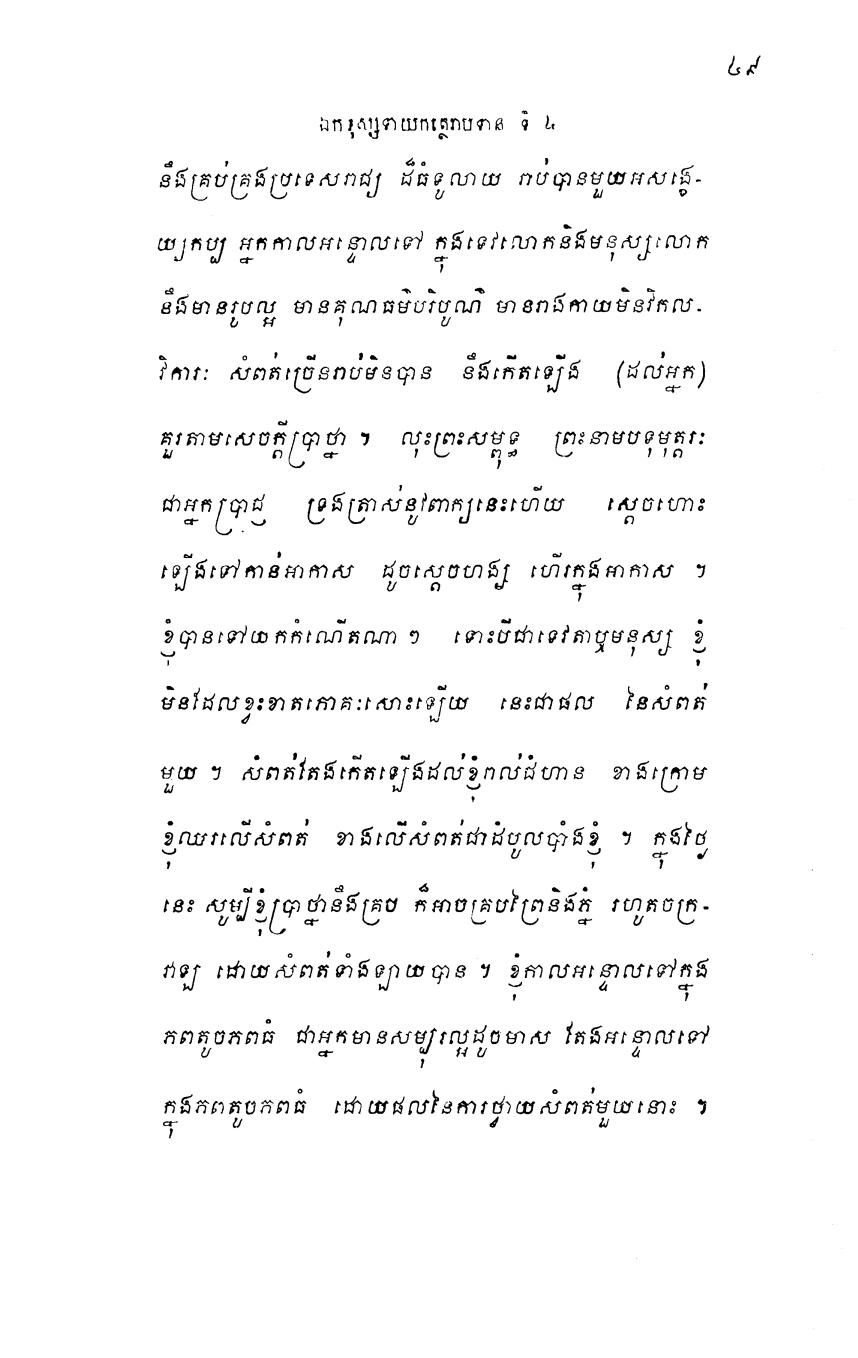 ៤៩
ឯករុស្សទាយកត្ថេរាបទាន ទី ៤
នឹងគ្រប់គ្រងប្រទេសរាជ្យ ដ៏ធំទូលាយ រាប់បានមួយអសង្ខេ-
យ្យកប្ប អ្នកកាលអន្ទោលទៅ ក្នុងទេវលោកនិងមនុស្សលោក
នឹងមានរូបល្អ មានគុណធម៌បរិបូណ៌ មានរាងកាយមិនវិកល-
វិការៈ សំពត់ច្រើនរាប់មិនបាន នឹងកើតឡើង (ដល់អ្នក)
គួរតាមសេចក្តីប្រាថ្នា ។ លុះព្រះសម្ពុទ្ធ ព្រះនាមបទុមុត្តរៈ
ជាអ្នកប្រាជ្ញ ទ្រង់ត្រាស់នូវពាក្យនេះហើយ ស្តេចហោះ
ឡើងទៅកាន់អាកាស ដូចស្តេចហង្ស ហើរក្នុងអាកាស ។
ខ្ញុំបានទៅយកកំណើតណា ៗ ទោះបីជាទេវតាឬមនុស្ស ខ្ញុំ
មិនដែលខ្វះខាតភោគៈសោះឡើយ នេះជាផល នៃសំពត់
មួយ ។ សំពត់តែងកើតឡើងដល់ខ្ញុំរាល់ជំហាន ខាងក្រោម
ខ្ញុំឈរលើសំពត់ ខាងលើសំពត់ជាដំបូលបាំងខ្ញុំ ។ ក្នុងថ្ងៃ
នេះ សូម្បីខ្ញុំប្រាថ្នានឹងគ្រប ក៏អាចគ្របព្រៃនិងភ្នំ រហូតចក្រ-
វាឡ ដោយសំពត់ទាំងឡាយបាន ។ ខ្ញុំកាលអន្ទោលទៅក្នុង
ភពតូចភពធំ ជាអ្នកមានសម្បុរល្អដូចមាស តែងអន្ទោលទៅ
ក្នុងភពតូចភពធំ ដោយផលនៃការថ្វាយសំពត់មួយនោះ ។